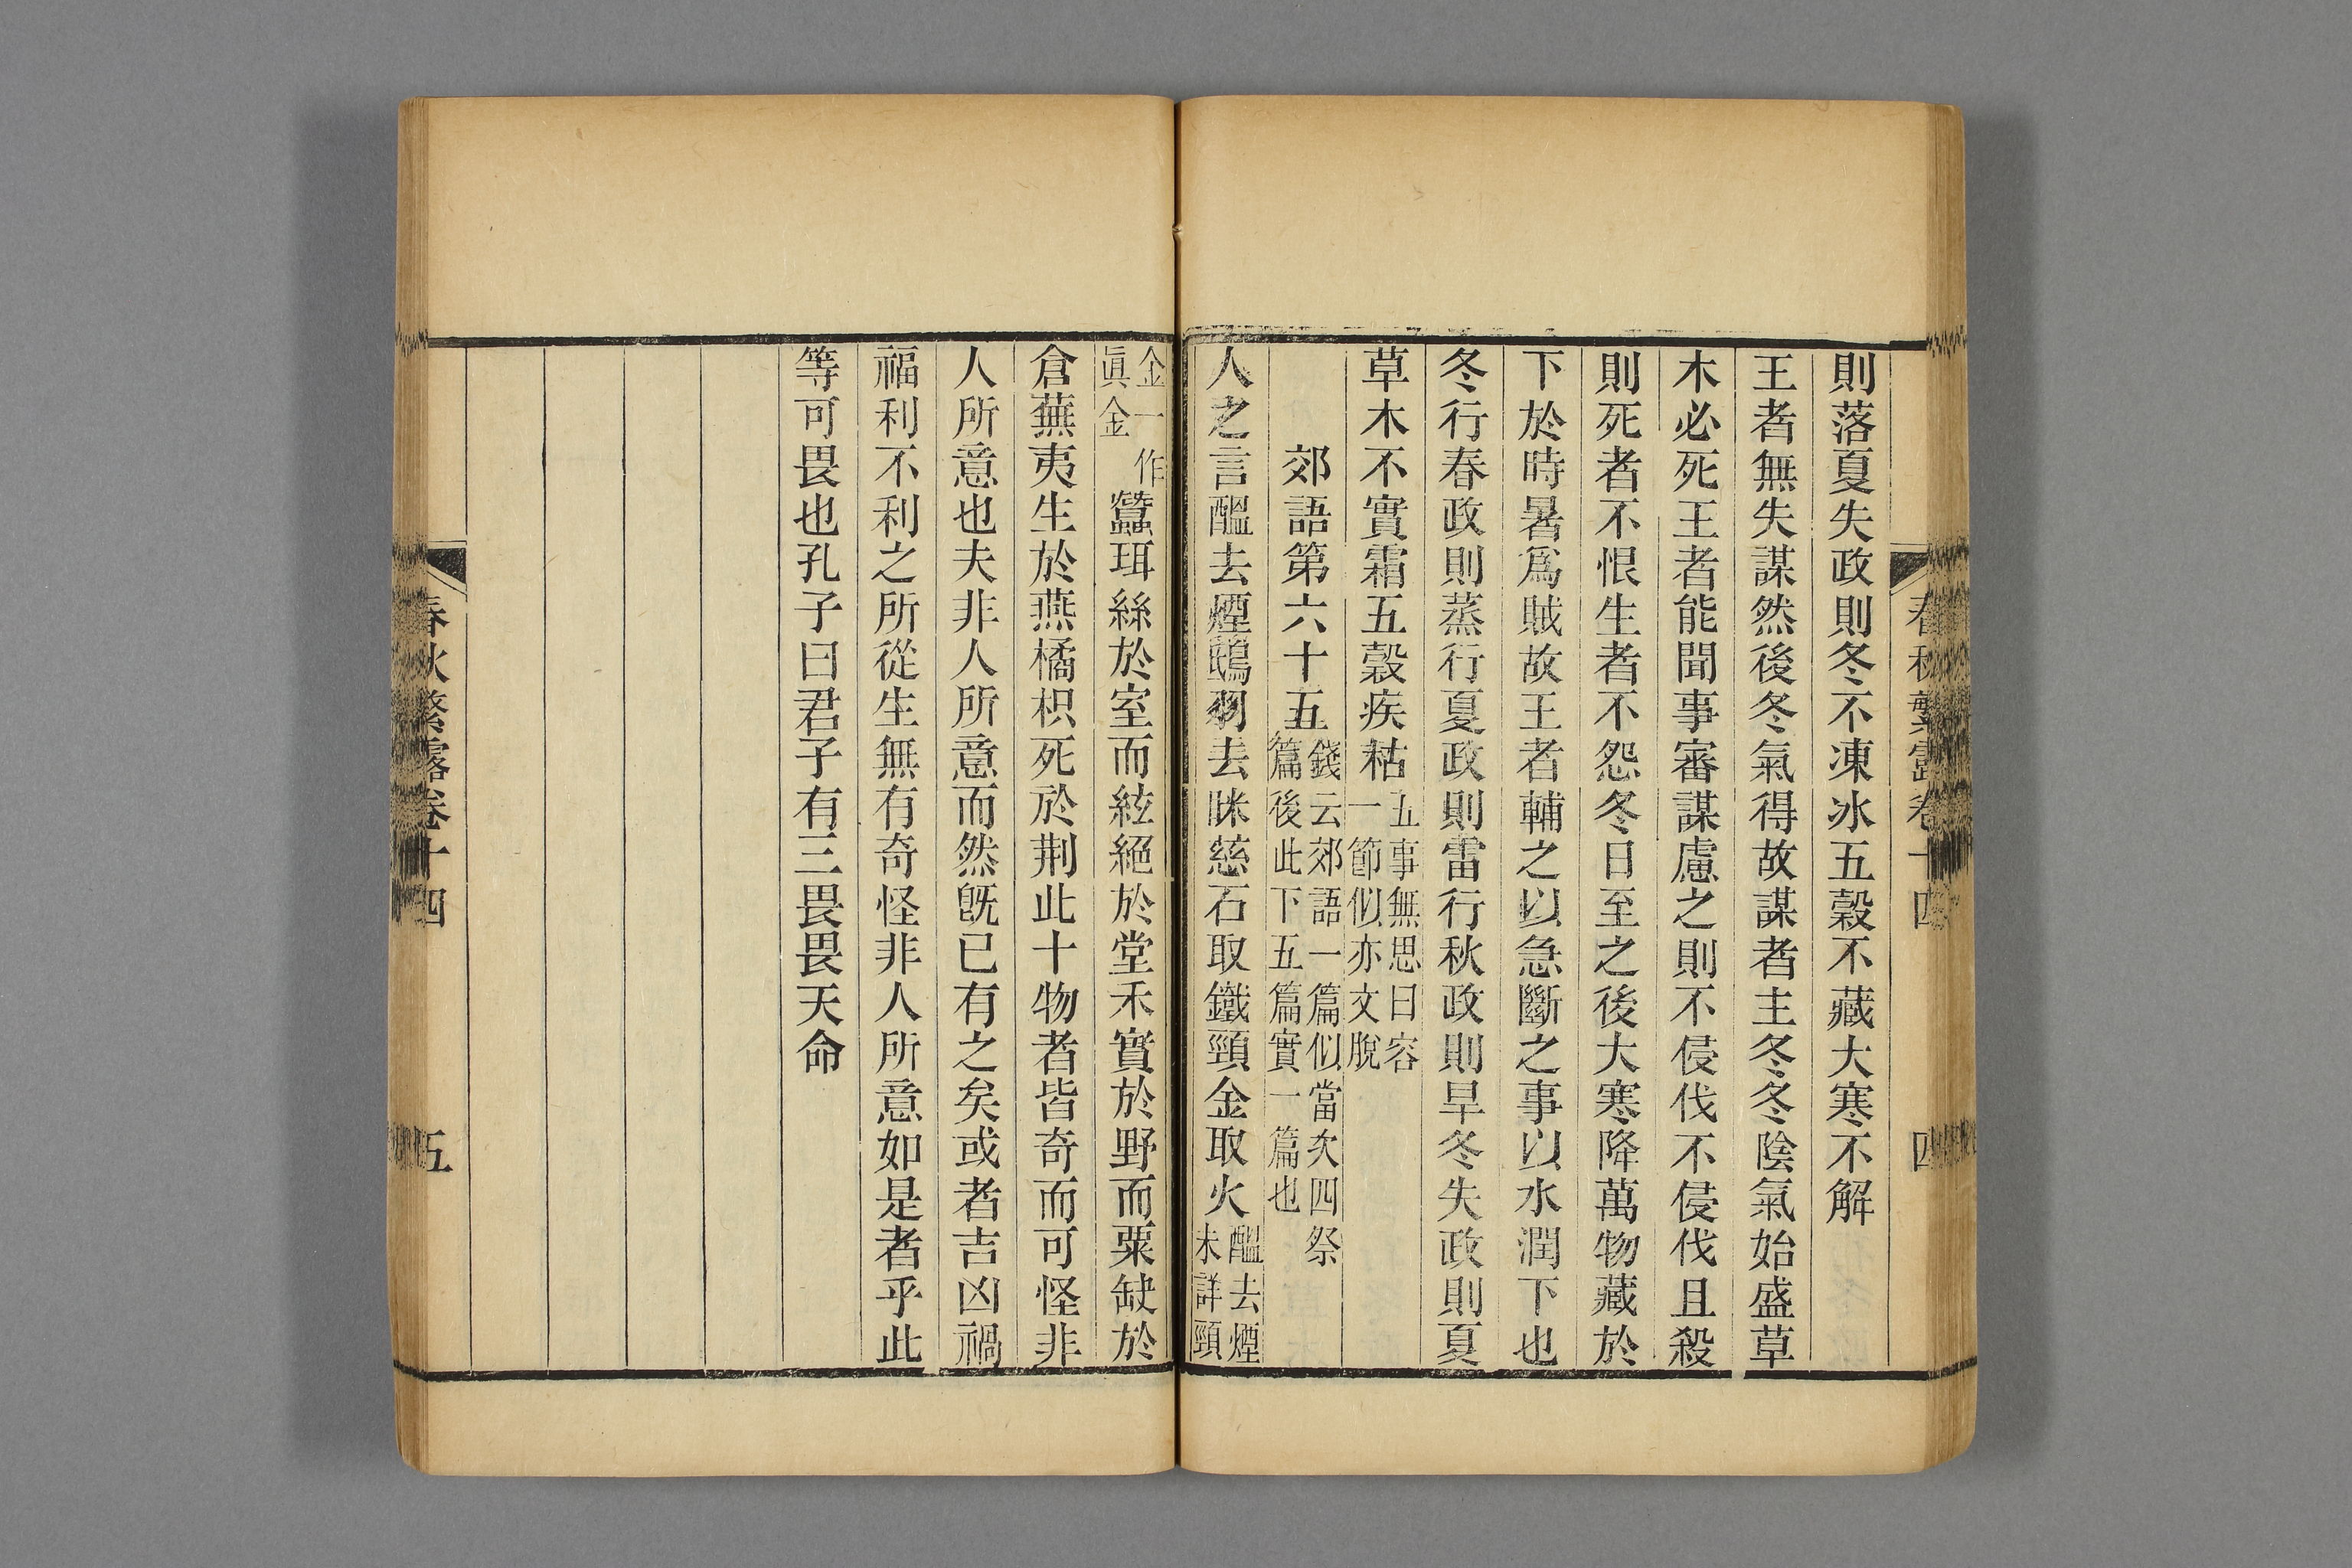 春秋繁露卷十四
四
則落夏失政則冬不凍冰五穀不藏大寒不解
王者無失謀然後冬氣得故謀者主冬冬陰氣始盛草
木必死王者能聞事審謀慮之則不侵伐不侵伐且殺
則死者不恨生者不怨冬日至之後大寒降萬物藏於
下於時暑爲賊故王者輔之以急斷之事以水潤下也
冬行春政則蒸行夏政則雷行秋政則旱冬失政則夏
草木不實霜五穀疾枯
五事無思曰容
一節似亦文脫
郊語第六十五
錢云郊語一篇似當次四祭
篇後此下五篇實一篇也
人之言醞去煙鴟羽去眯慈石取鐵頸金取火
醞去煙
未詳頸
金一作
眞金
蠶珥絲於室而絃絕於堂禾實於野而粟缺於
倉蕪夷生於燕橘枳死於荆此十物者皆奇而可怪非
人所意也夫非人所意而然旣已有之矣或者吉凶禍
福利不利之所從生無有奇怪非人所意如是者乎此
等可畏也孔子曰君子有三畏畏天命
春秋繁露卷十四
五